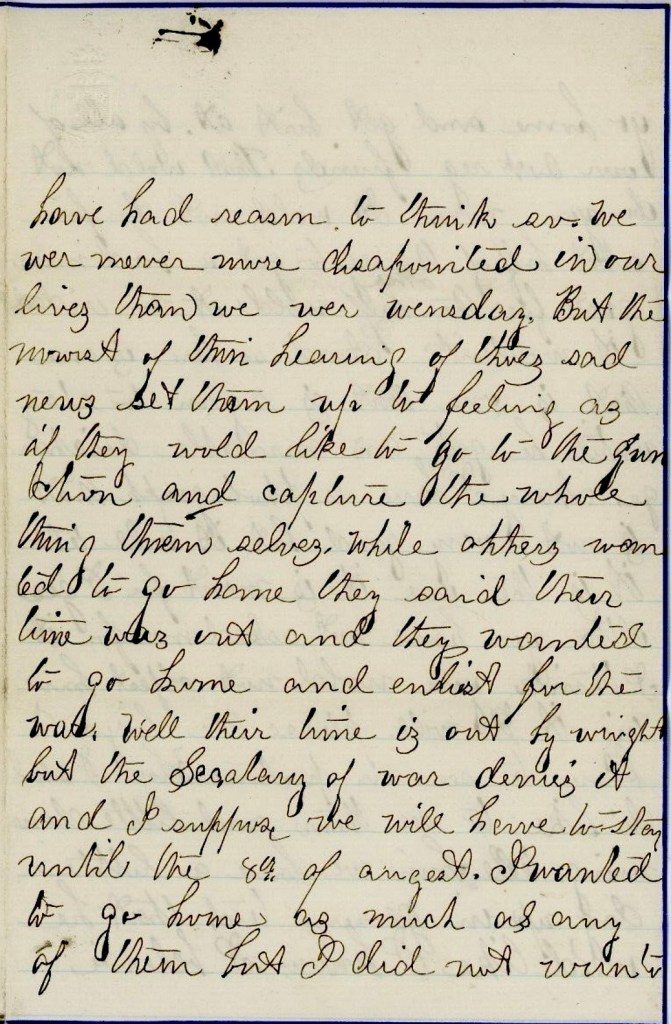 have had reason to think so. We
wer never more disapointed in our
lives than we wer wensday. But the
mowst of thim hearing of thees sad
news set them up to feeling as
if they wold like to go to the Jun
ction and capture the whole
thing them selves. While othhers wan
ted to go home they said their
time was out and they wanted
to go home and enlist for the
war. Well their time is out by wright
but the Secatary of war denies it
and I suppose we will have to stay
until the 8th of augest. I wanted
to go home as much as any
of them but I did not want to